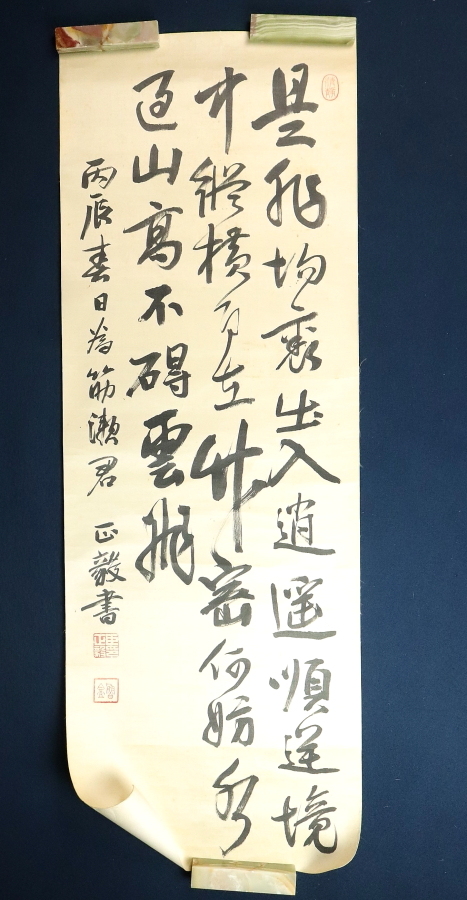 是非場裏出入逍遥順逆境
中縱横自在竹密何妨水
過山高不碍雲飛
丙辰春日為筋瀬君 正毅書